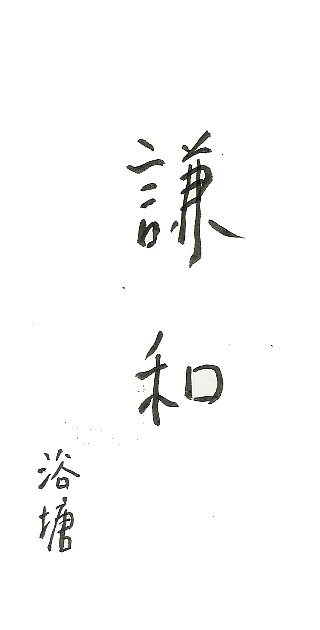 謙和
浴塘